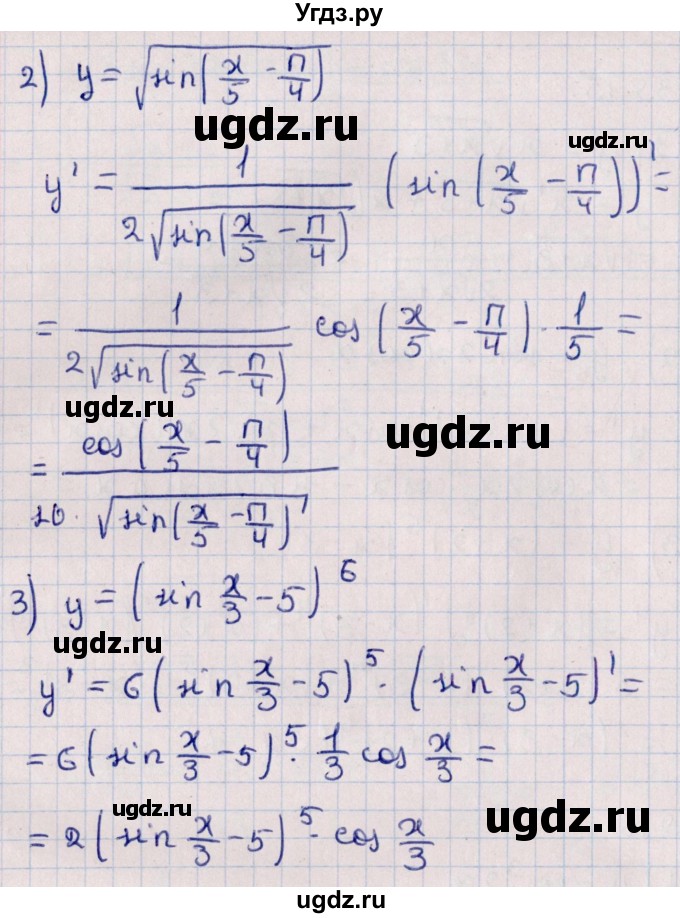 Угдз.ру
2) y = √(sin(x/5 − π/4))
ugdz.ru
ugdz.ru
y' = 1/(2√(sin(x/5 − π/4))) (sin(x/5 − π/4))' =
= 1/(2√(sin(x/5 − π/4))) cos(x/5 − π/4) · 1/5 =
ugdz.ru
ugdz.ru
= cos(x/5 − π/4)/(10 · √(sin(x/5 − π/4)))
3) y = (sin x/3 − 5)^6
ugdz.ru
y' = 6(sin x/3 − 5)^5 · (sin x/3 − 5)' =
= 6(sin x/3 − 5)^5 · 1/3 cos x/3 =
ugdz.ru
ugdz.ru
= 2(sin x/3 − 5)^5 · cos x/3
ugdz.ru